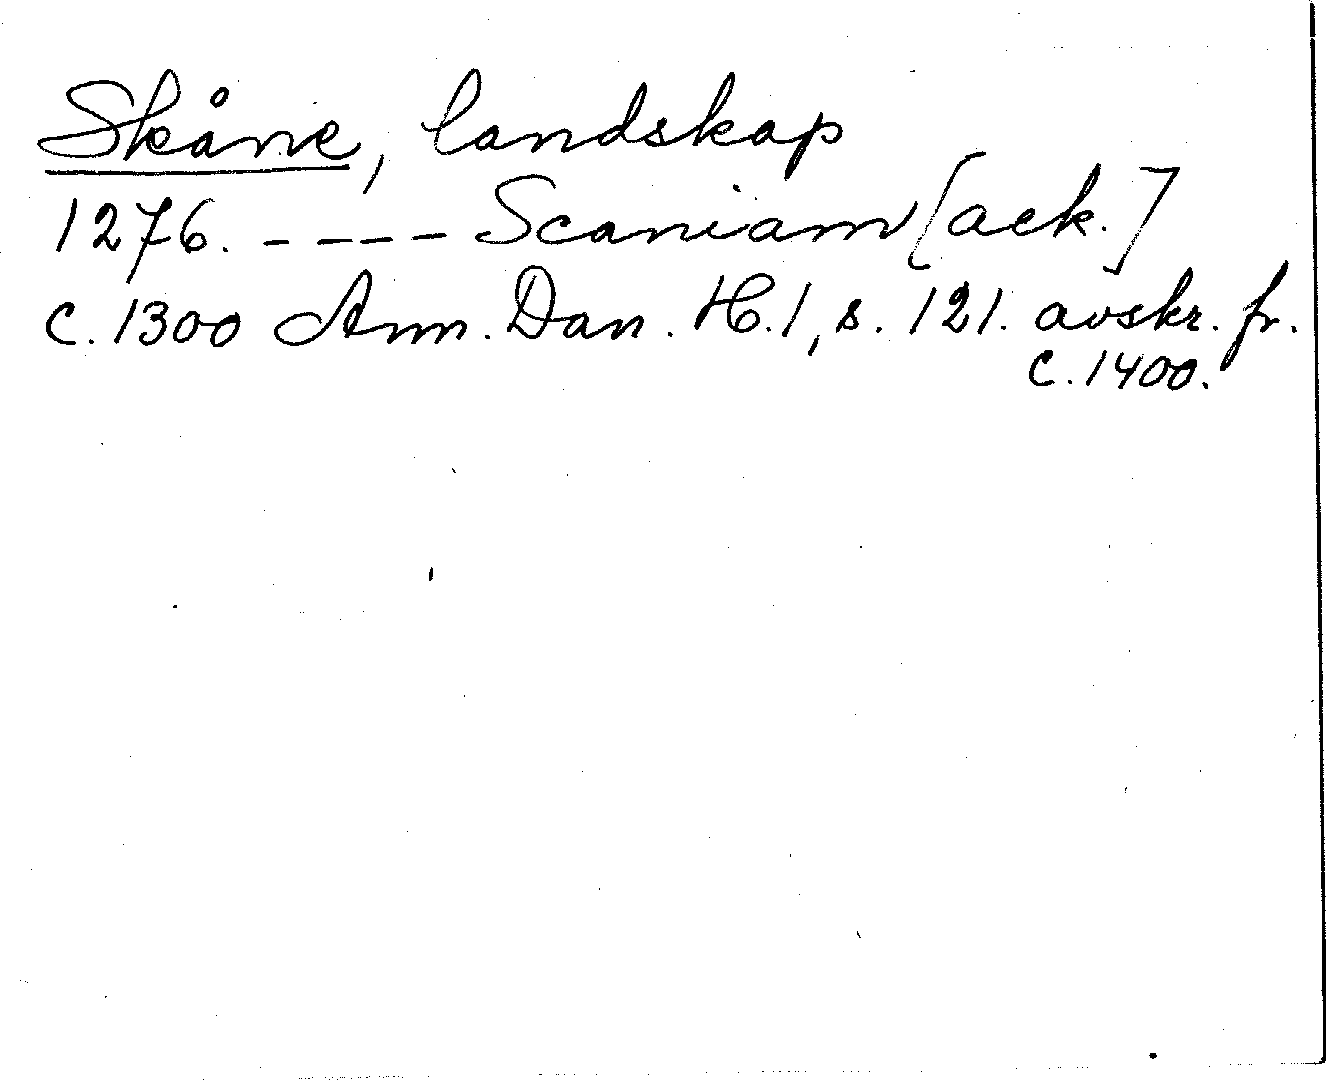 Skåne, landskap
1276. ---- Scaniam [ack.]
c. 1300 Ann. Dan. H. 1, s. 121. avskr. fr.
c. 1400.